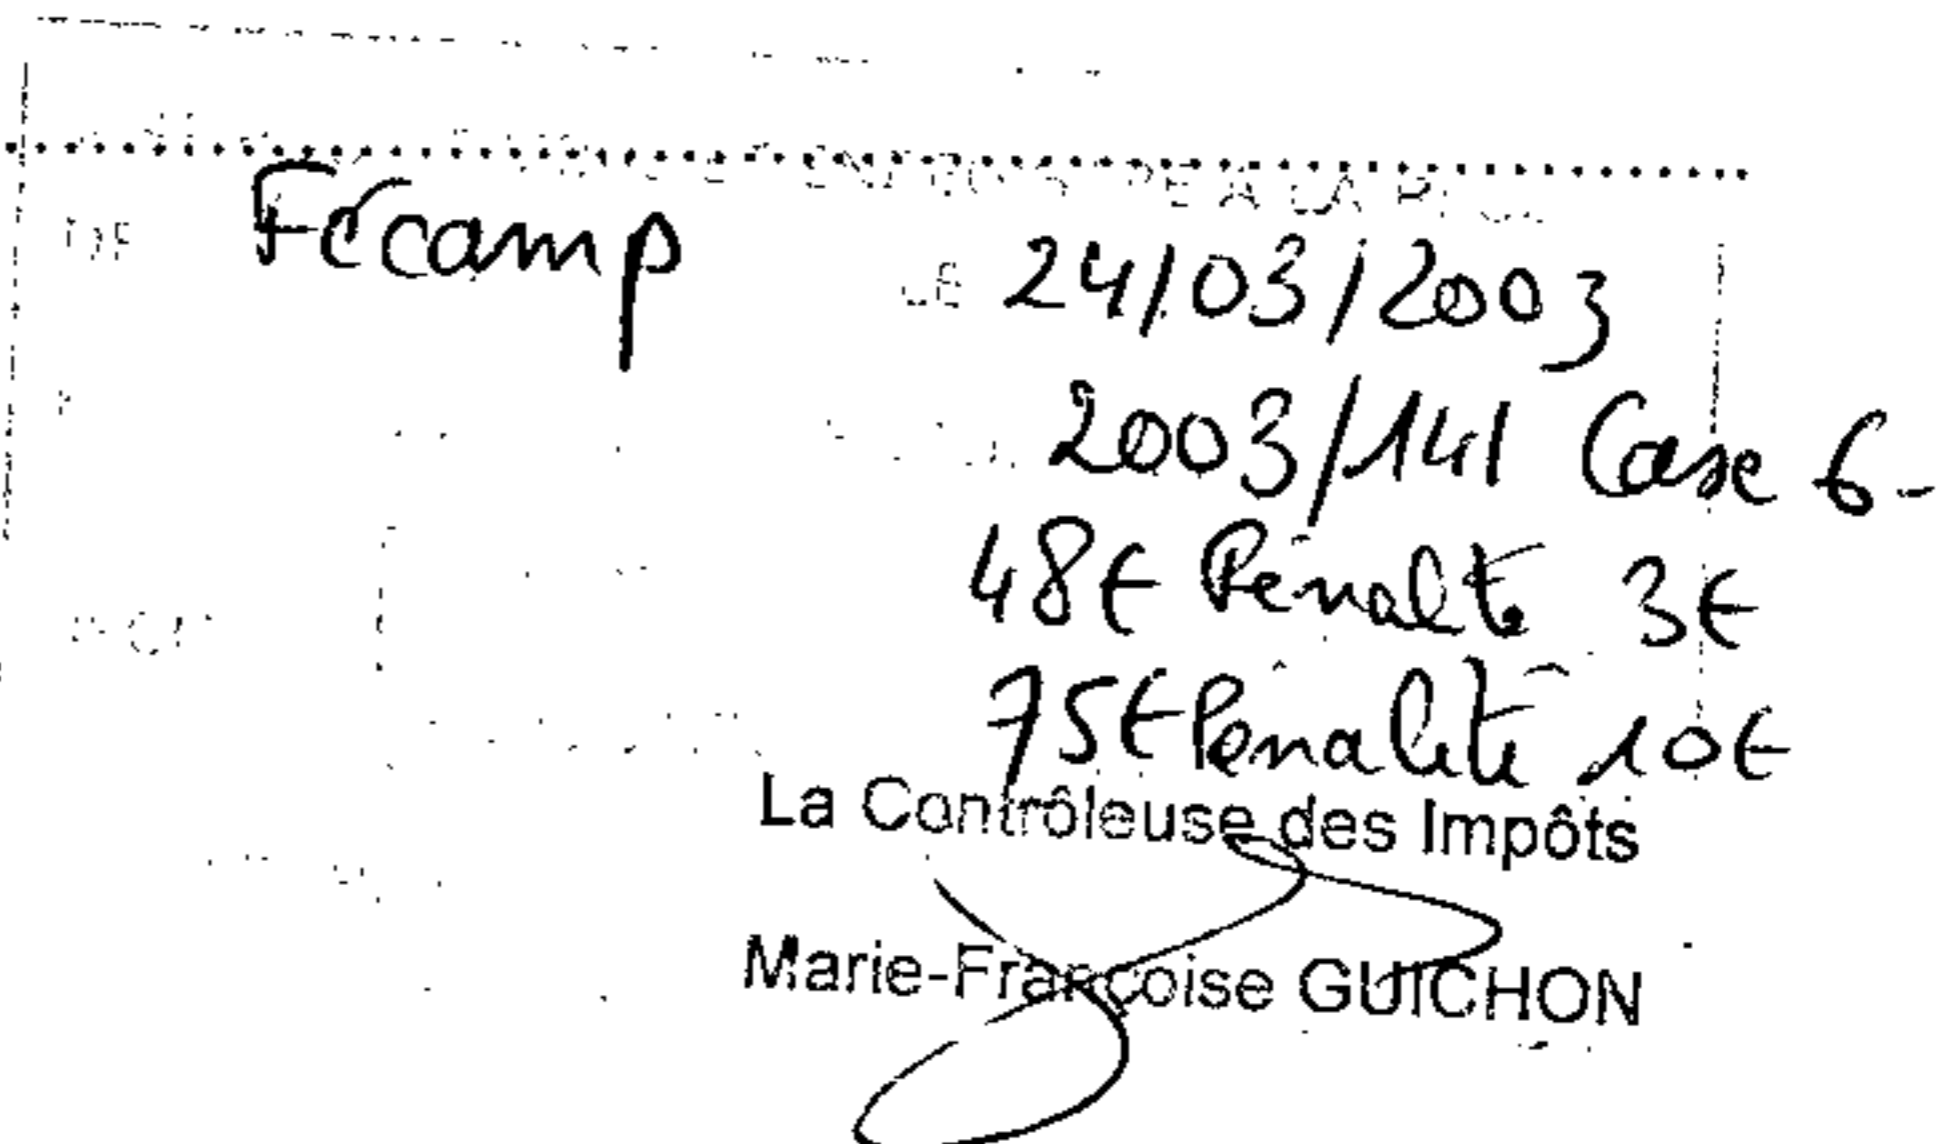 DE Fécamp
LE 24/03/2003
2003/141 Case 6-
48€ Pénalité 3€
75€ Pénalité 10€
La Contrôleuse des Impôts
Marie-Françoise GUICHON